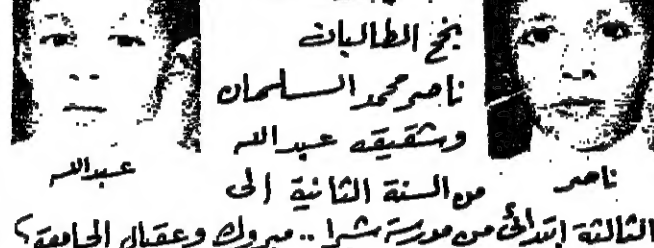 نجح الطالبان
ناصر محمد السلمان
وشقيقه عبدالله
عبدالله
ناصر
من السنة الثانية الى
الثالثة إبتدائي من مدرسة شرا .. مبروك وعقبال الجامعة؟